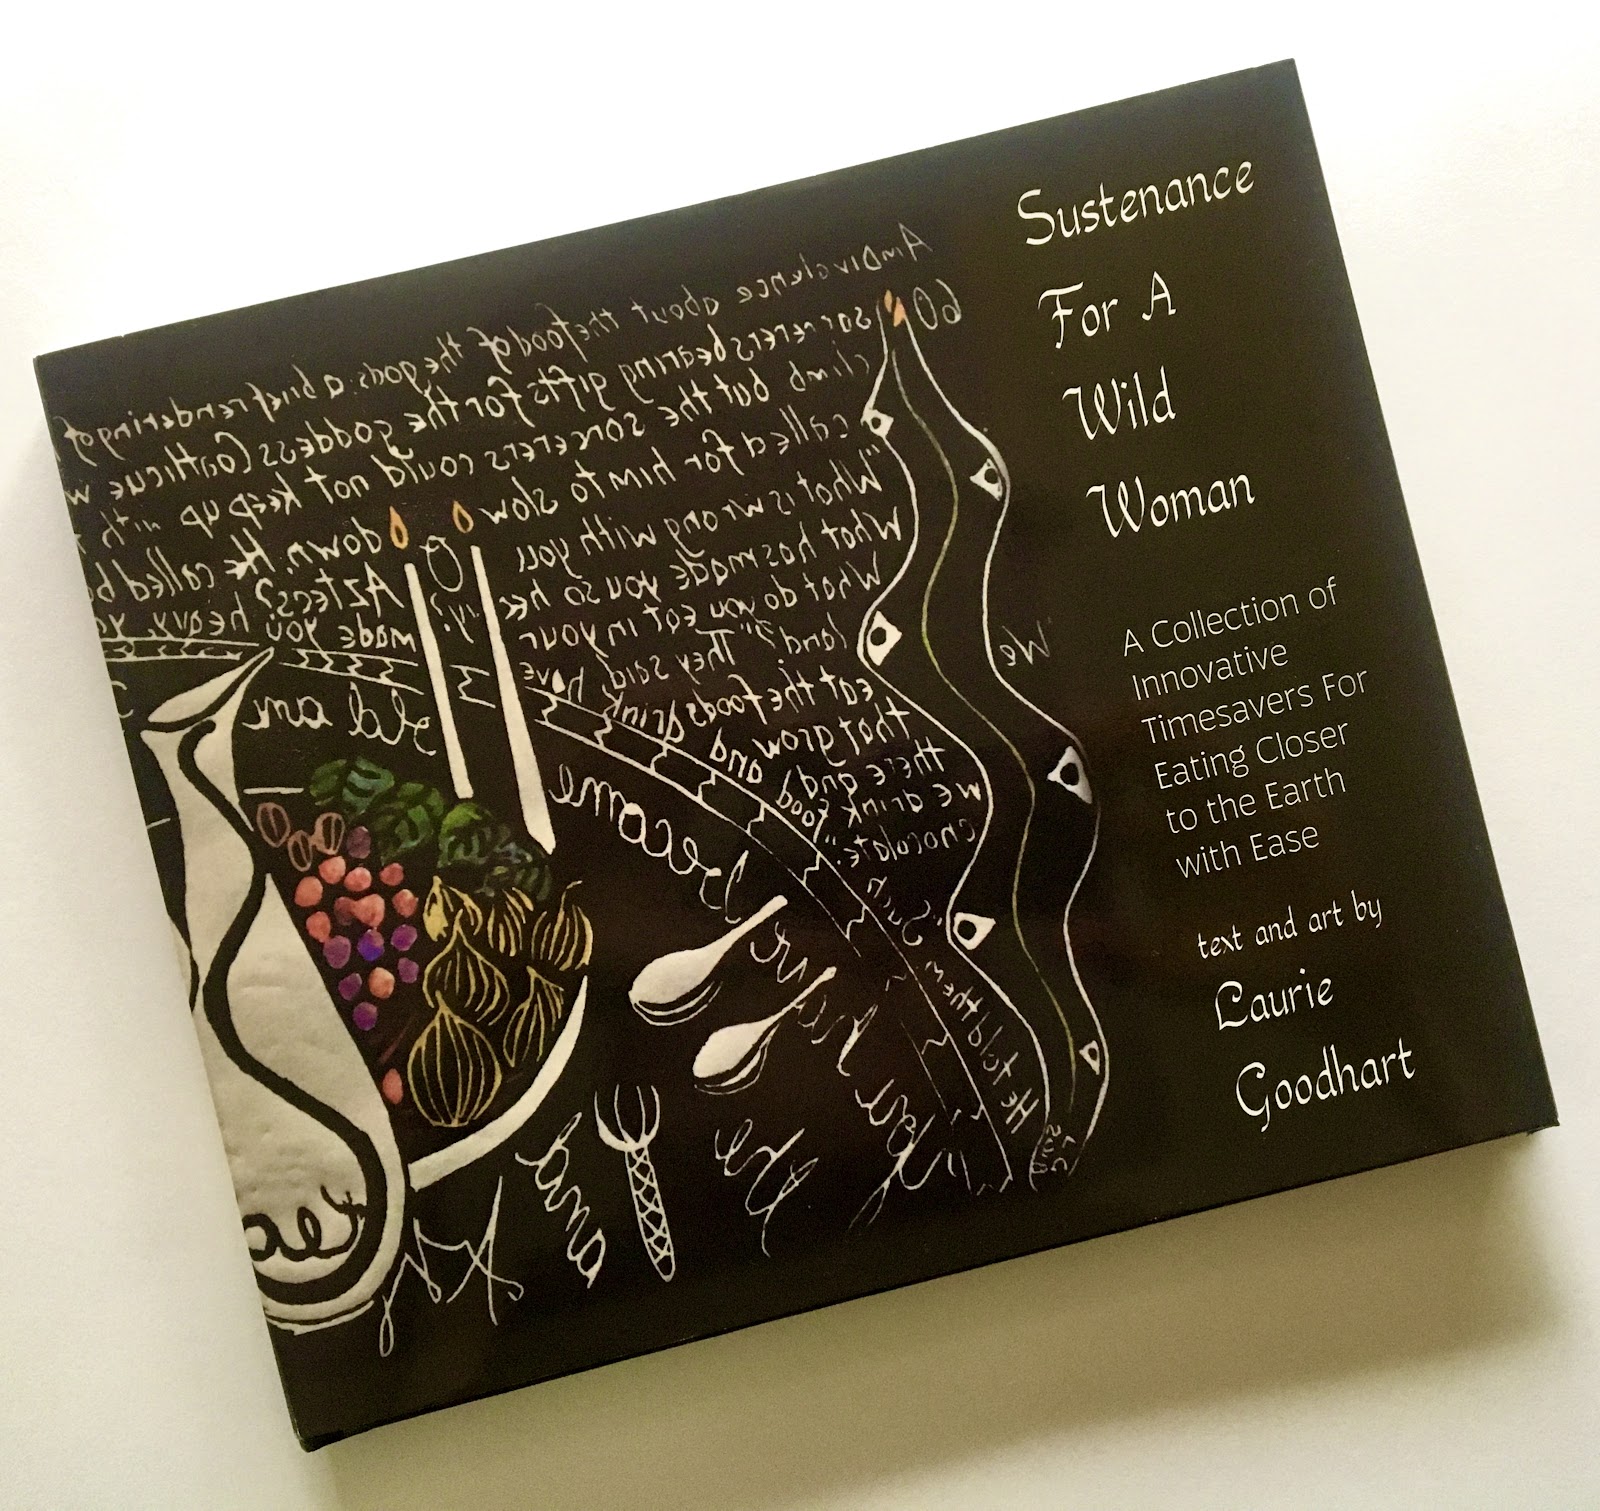 Sustenance
For A
Wild
Woman
A Collection of
Innovative
Timesavers For
Eating Closer
to the Earth
with Ease
text and art by
Laurie
Goodhart
Ambivalence about the food of the gods: a brief rendering of
sorcerers bearing gifts for the goddess Coatlicue
climb but the sorcerers could not keep up with
called for him to slow down. He called
"What is wrong with you, Aztecs?
What has made you so
What do you eat in your
land?" They said
eat the foods
that grow
there and
we drink
chocolate."
He told them, "Such food and drink have made you heavy
become
and
the